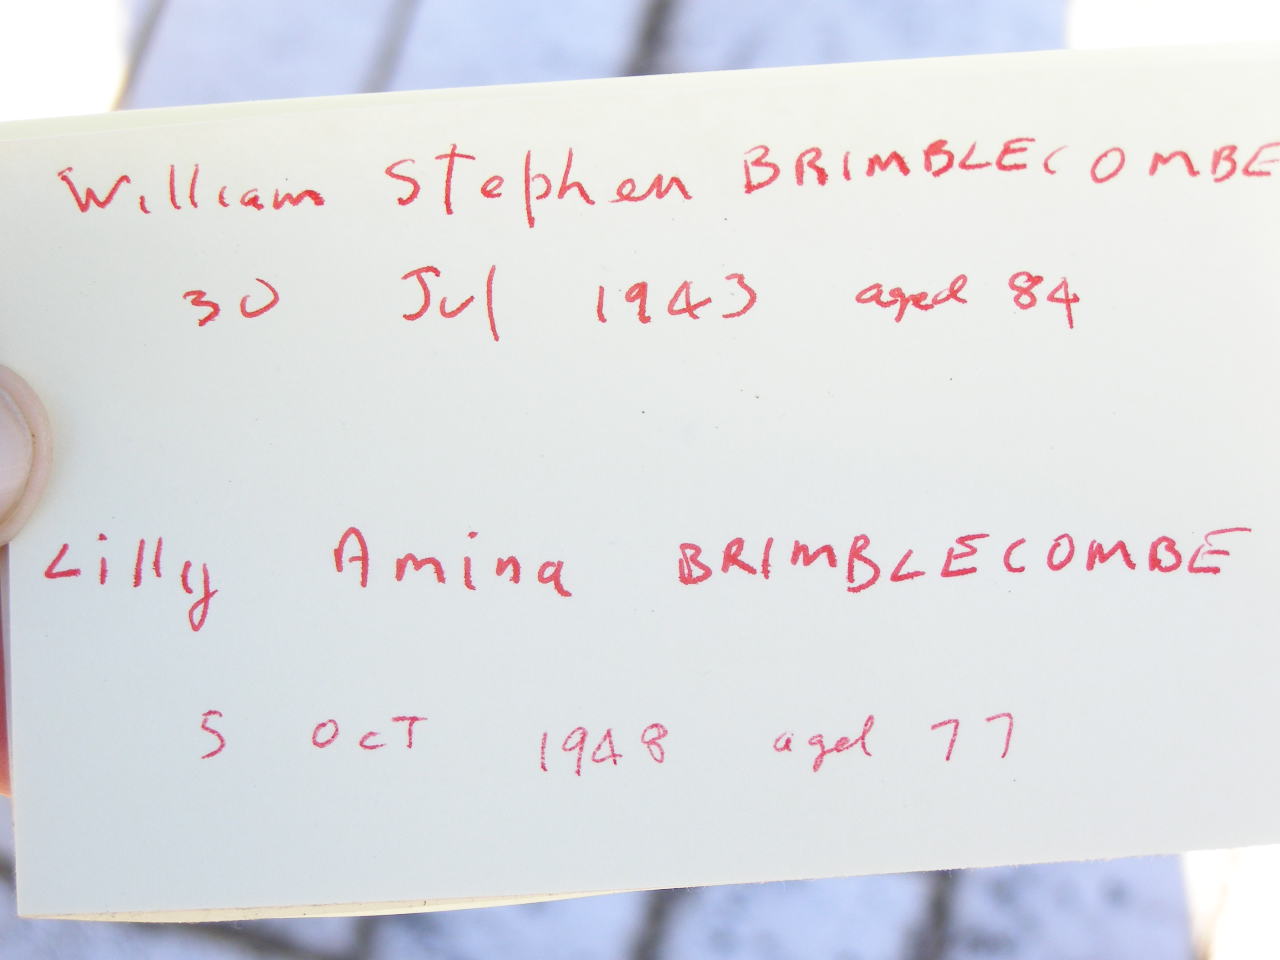 William Stephen BRIMBLECOMBE
30 Jul 1943 aged 84
Lilly Amina BRIMBLECOMBE
5 OcT 1948 aged 77